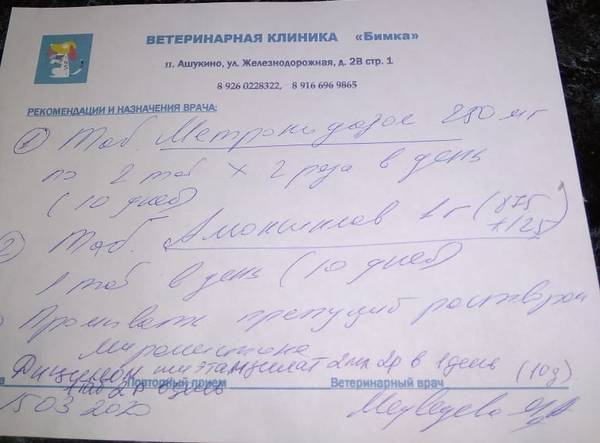 ВЕТЕРИНАРНАЯ КЛИНИКА «Бимка»
п. Ашукино, ул. Железнодорожная, д. 2В стр. 1
8 926 0228322, 8 916 696 9865
РЕКОМЕНДАЦИИ И НАЗНАЧЕНИЯ ВРАЧА:
1) Таб. Метронидазол 250 мг
по 2 таб × 2 раза в день
(10 дней)
2) Таб. Амоксиклав 1 г (875
+125)
1 таб в день (10 дней)
Промывать препуций раствором
мирамистина
Дицинон этамзилат 2 мл 2р в 1 день (10д)
Повторный прием Ветеринарный врач
1 таб 2 р в день
15 03 2020 Медведева